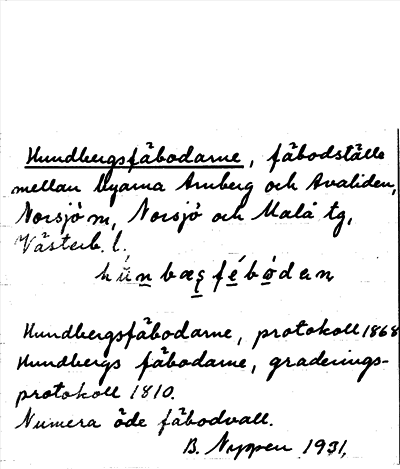 Hundbergsfäbodarne, fäbodställe
mellan byarna Arnberg och Avaliden,
Norsjö m, Norsjö och Malå tg,
Västerb. l.
Hundbergsfäbodarne, protokoll 1868
Hundbergs fäbodarne, graderings-
protokoll 1810.
Numera öde fäbodvall.
B. Nyppen 1931.